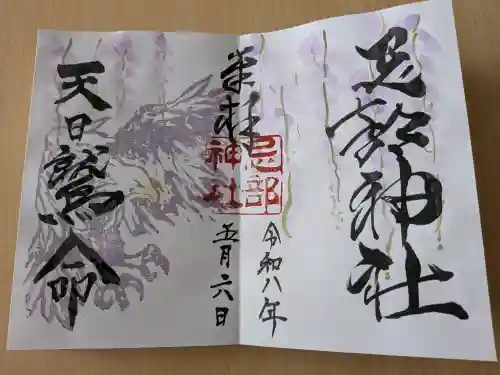 忌部神社
崇拝
忌部
神社
令和八年
五月六日
天日鷲命